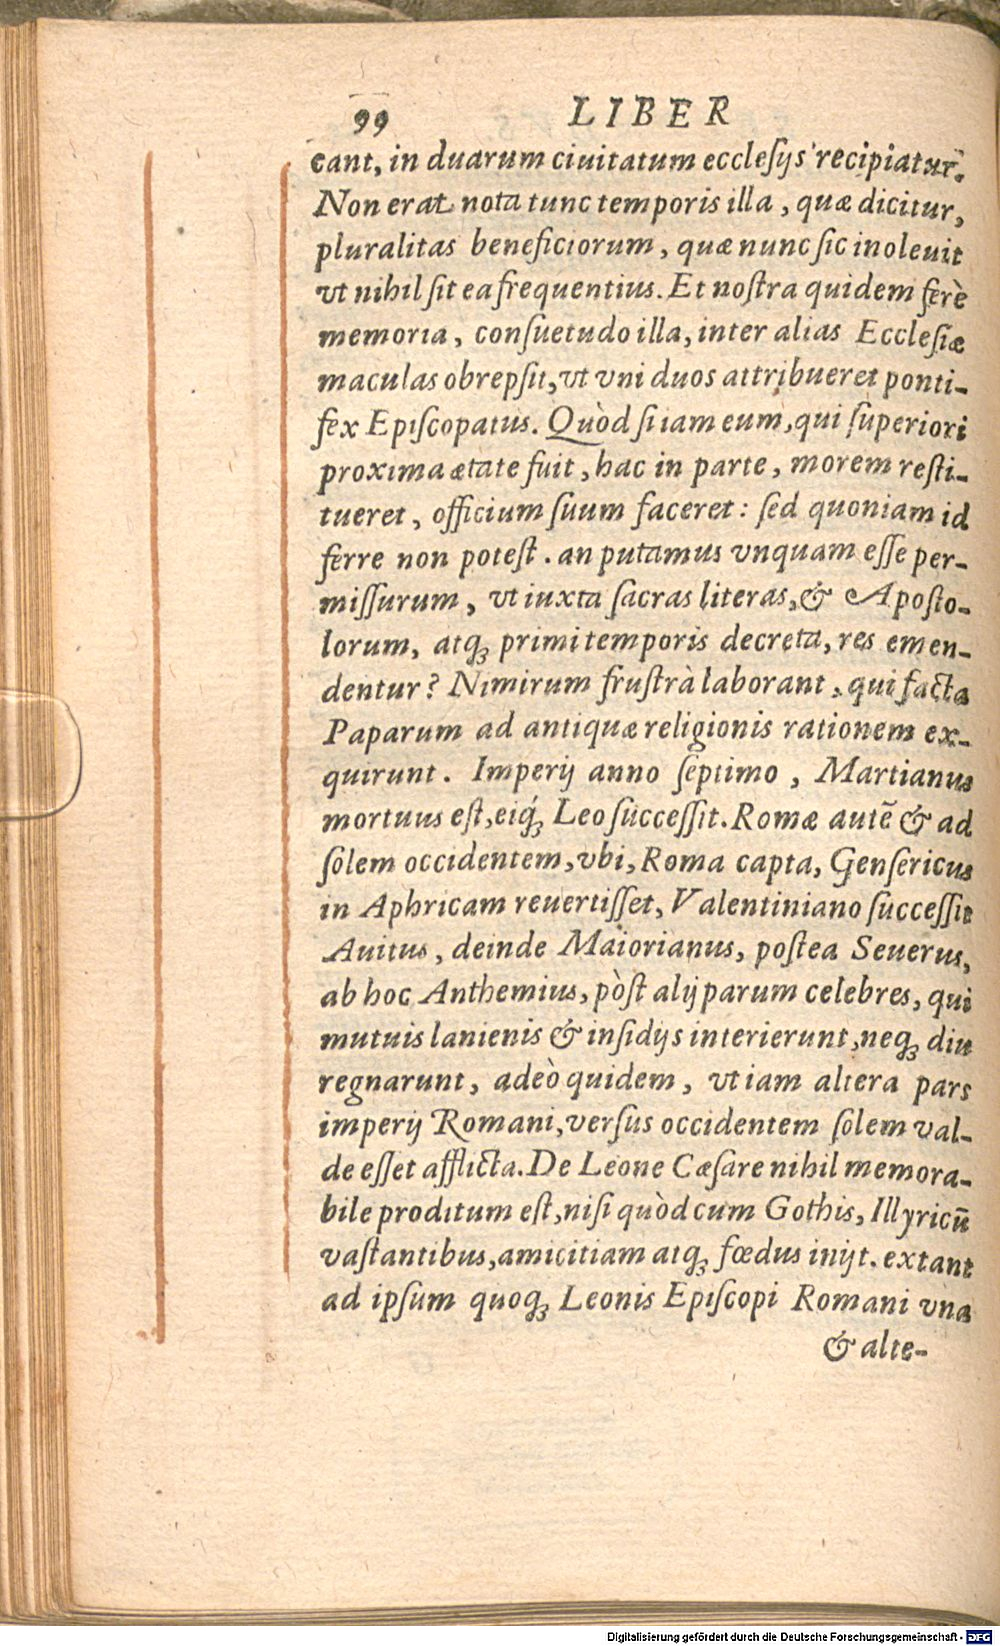 99 LIBER
cant, in duarum ciuitatum ecclesijs recipiatur.
Non erat nota tunc temporis illa, quæ dicitur,
pluralitas beneficiorum, quæ nunc sic inoleuit
vt nihil sit ea frequentius. Et nostra quidem ferè
memoria, consuetudo illa, inter alias Ecclesiæ
maculas obrepsit, vt vni duos attribueret ponti-
fex Episcopatus. Quòd si iam eum, qui superiori
proxima ætate fuit, hac in parte, morem resti-
tueret, officium suum faceret: sed quoniam id
ferre non potest. an putamus vnquam esse per-
missurum, vt iuxta sacras literas, & Aposto-
lorum, atq́; primi temporis decreta, res emen-
dentur? Nimirum frustrà laborant, qui facta
Paparum ad antiquæ religionis rationem ex-
quirunt. Imperij anno septimo, Martianus
mortuus est, eiq́; Leo successit. Romæ autē & ad
solem occidentem, vbi, Roma capta, Gensericus
in Aphricam reuertisset, Valentiniano successit
Auitus, deinde Maiorianus, postea Seuerus,
ab hoc Anthemius, pòst alij parum celebres, qui
mutuis lanienis & insidijs interierunt, neq; diu
regnarunt, adeò quidem, vt iam altera pars
imperij Romani, versus occidentem solem val-
de esset afflicta. De Leone Cæsare nihil memora-
bile proditum est, nisi quòd cum Gothis, Illyricū
vastantibus, amicitiam atq; fœdus inijt. extant
ad ipsum quoq; Leonis Episcopi Romani vna
& alte-
Digitalisierung gefördert durch die Deutsche Forschungsgemeinschaft - DFG